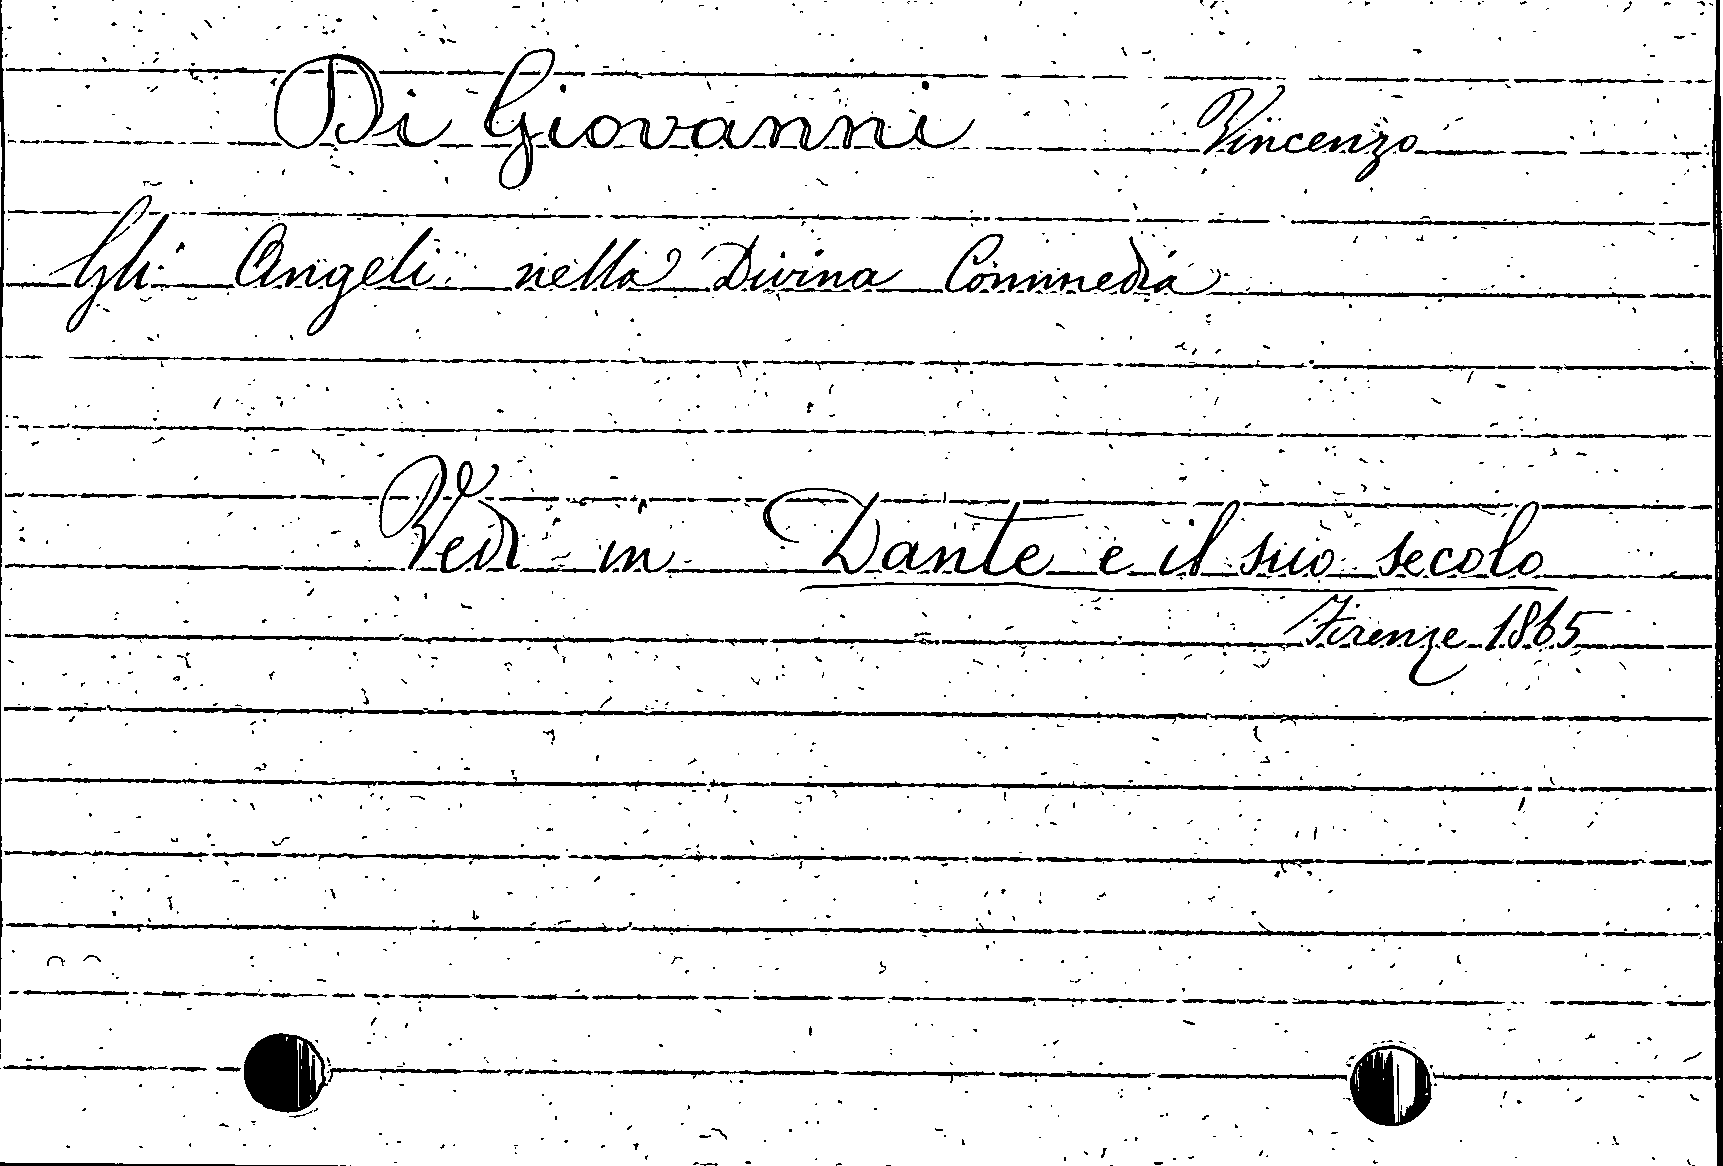 Di Giovanni Vincenzo
Gli Angeli nella Divina Commedia
Vedi in Dante e il suo secolo
Firenze 1865